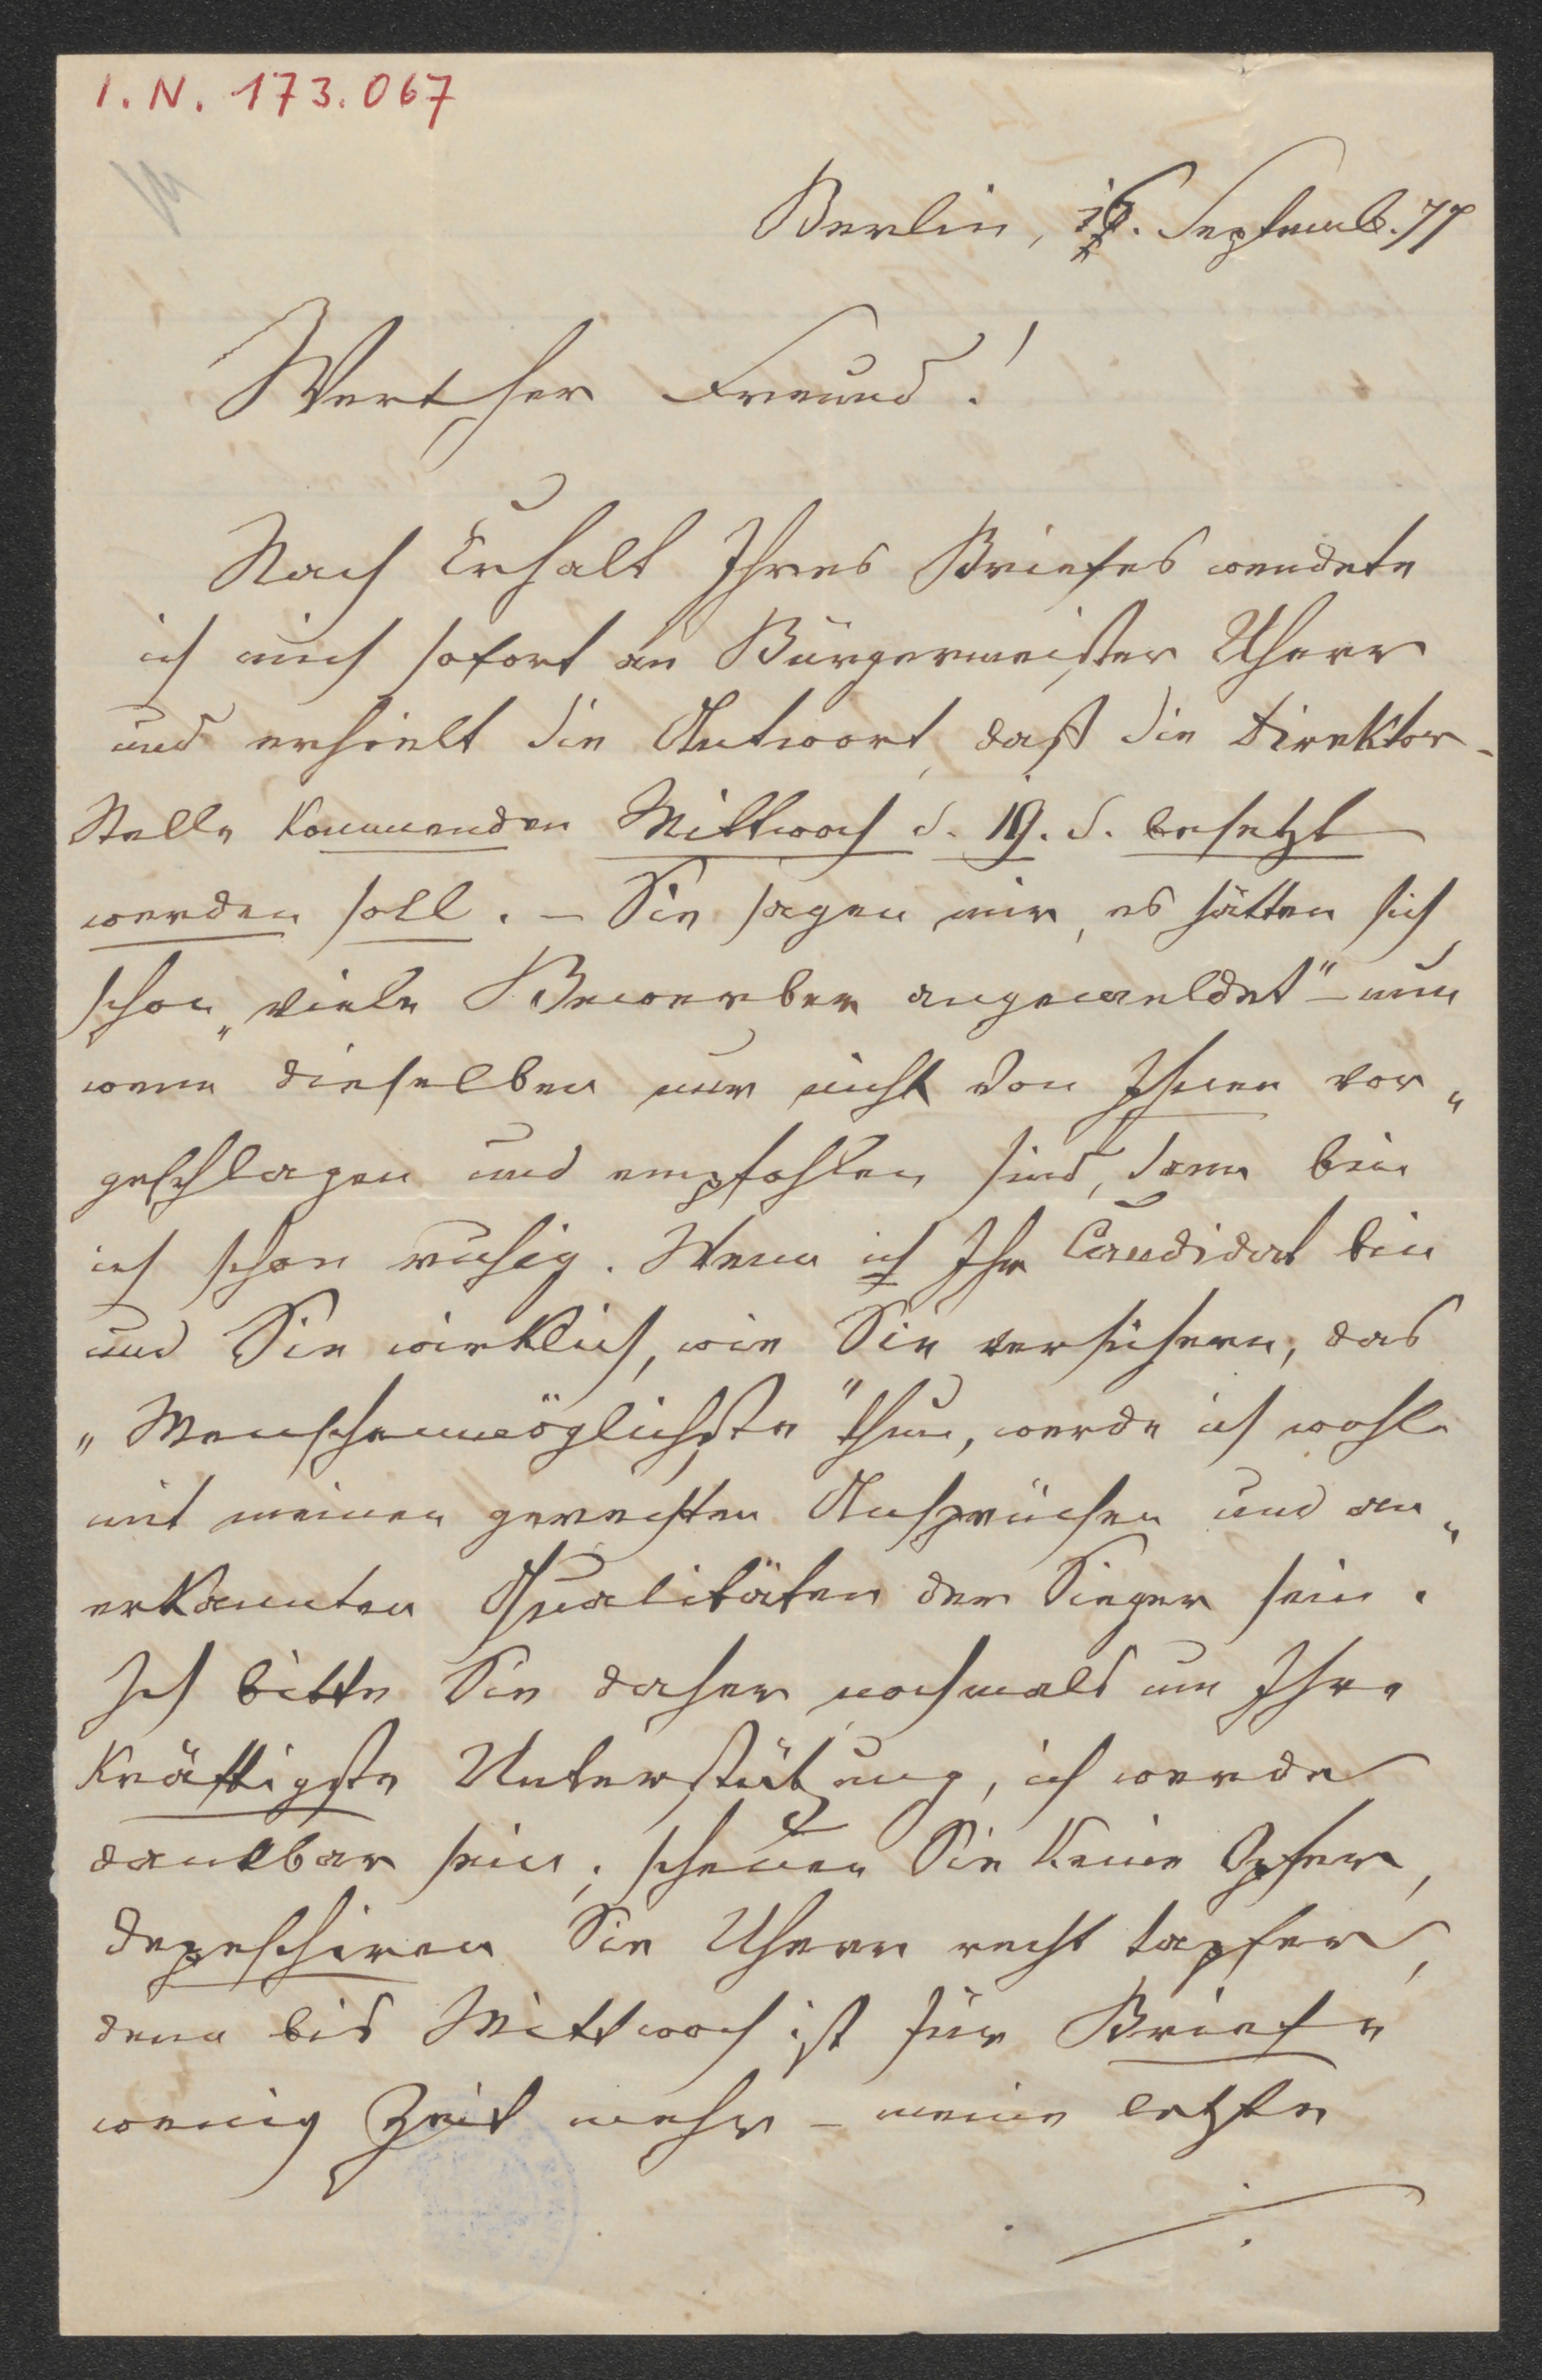 I. N. 173.067
Berlin, 16. Septemb. 77
Werther Freund!
Nach Erhalt Ihres Briefes wendete
ich mich sofort an Bürgermeister Uherr
und erhielt die Antwort, daß die Direktor-
Stelle kommenden Mittwoch d. 19. d. besetzt
werden soll. – Sie sagen mir, es hätten sich
schon „viele Bewerber angemeldet" – nun
wenn dieselben nur nicht von Ihnen vor„
geschlagen und empfohlen sind, dann bin
ich schon ruhig. Wenn ich Ihr Candidat bin
und Sie wirklich, wie Sie versichern, das
„Menschenmöglichste" thun, werde ich wohl
mit meinen gerechten Ansprüchen und an„
erkannten Qualitäten der Sieger sein.
Ich bitte Sie daher nochmals um Ihre
kräftigste Unterstützung, ich werde
dankbar sein; scheuen Sie keine Opfer,
depeschiren Sie Uherr recht tapfer,
denn bis Mittwoch ist für Briefe
wenig Zeit mehr – meine letzte